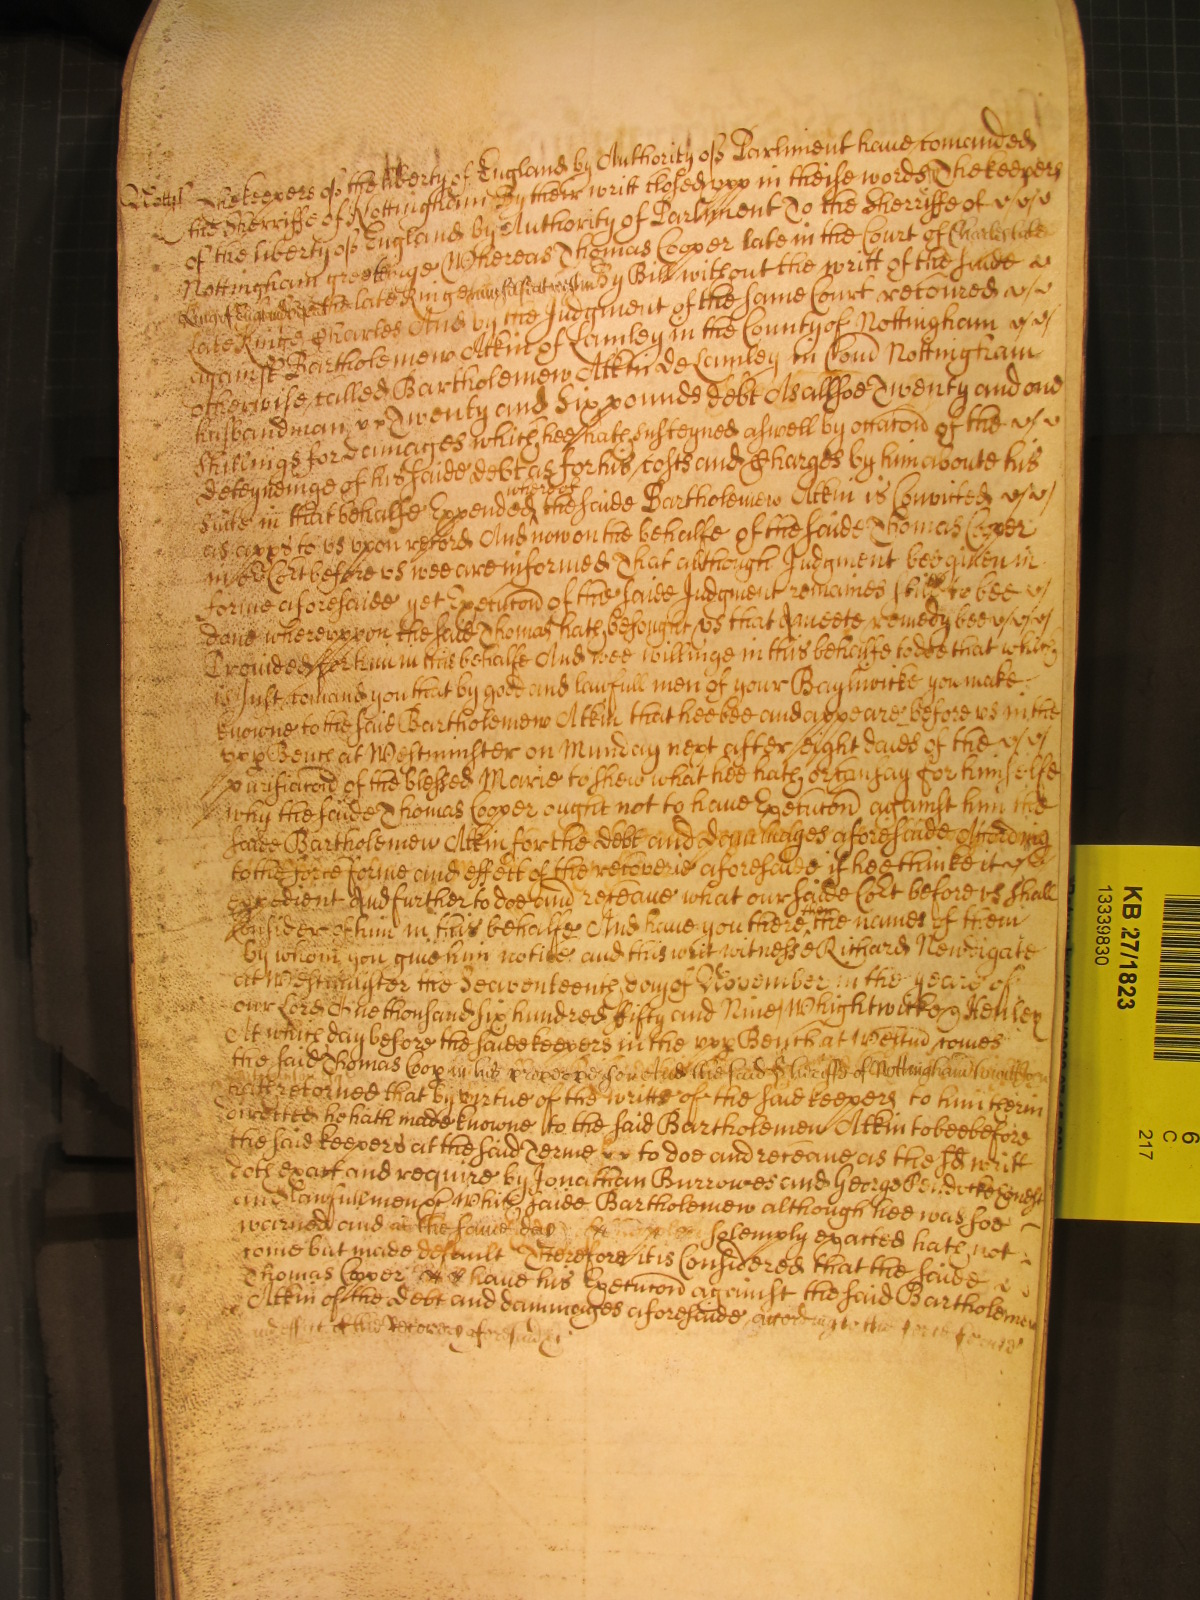 Notts The keepers of the liberty of England by Authority of Parliment have comanded
the Sherriffe of Nottingham By their writt closed xxx in theise words The keepers
of the liberty of England by Authority of Parliment To the Sherriffe of
Nottingham greetinge Whereas Thomas Cooper late in the Court of Charles late
King of England before the late Kinge By Bill without the writt of the saide
late Kinge Charles And by the Judgment of the same Court recovered
against Bartholemew Atkin of Lamley in the County of Nottingham
otherwise called Bartholemew Atkin de Lamley in Com Nottingham
husbandman xx Twenty and Six pounds debt As allsoe Twenty and one
shillings for damages which hee hath susteyned aswell by occacon of the
deteyneinge of his saide debt as for his costs and Charges by him aboute his
suite in that behalfe Expended whereof the saide Bartholemew Atkin is Convicted
as apps to us upon record And now on the behalfe of the saide Thomas Cooper
in Court before us wee are informed That although Judgment bee given in
forme aforesaide yet Execucon of the saide Judgment remaines still to bee
done whereuppon the said Thomas hath besought us that a meete remedy bee
Provided for him in this behalfe And wee willinge in this behalfe to doe that which
is Just comand you that by good and lawfull men of your Bayliwicke you make
knowne to the said Bartholemew Atkin that hee bee and appeare before us in the
xxx Bench at Westminster on Munday next after eight daies of the
purificacon of the blessed Marie to shew what hee hath or can say for himselfe
why the saide Thomas Cooper ought not to have Execucon against him the
saide Bartholemew Atkin for the debt and dammages aforesaide According
to the force forme and effect of the recoverie aforesaide if hee thinke it
expedient And further to doe and receave what our saide Court before us shall
Consider of him in this behalfe And have you there then the names of them
by whom you give him notice and this writ witnesse Richard Newdigate
at Westminster the Seaventeenth day of November in the yeare of
our Lord One thousand six hundred fifty and Nine Whightwicke Henley
At which day before the saide keepers in the xxx Bench at Westm comes
the said Thomas Coop in his proper person And the said Sheriffe of Nottingham
hath retorned that by vertue of the writte of the said keepers to him therin
directed he hath made knowne to the said Bartholemew Atkin to bee before
the said keepers at the said Terme xx to doe and receave as the sd writt
doth exact and require by Jonathan Burrowes and George honest
and lawfull men xc Which saide Bartholemew although hee was soe
warned and at the same day solemply exacted hath not
come but made default Therefore it is Considered that the saide
Thomas Cooper have his Execucon against the said Bartholemew
Atkin of the debt and dammages aforesaide according to the force forme
and effect of the Recovery aforesaid xc
KB 27/1823
13339830
6
C
217